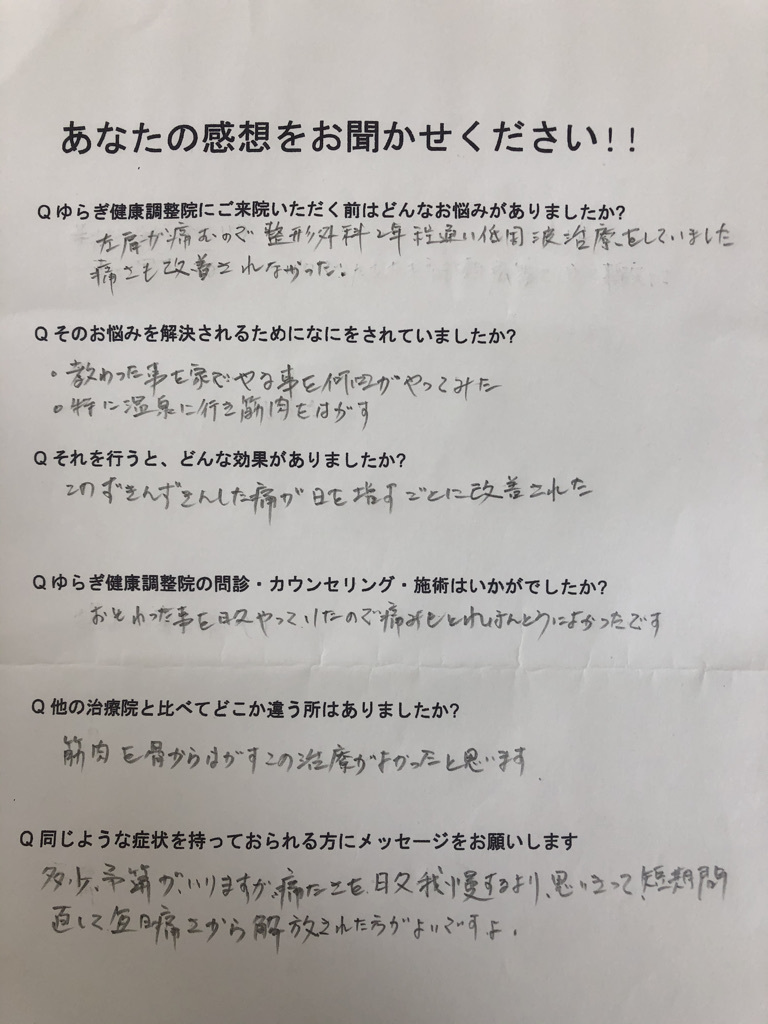 あなたの感想をお聞かせください!!
Qゆらぎ健康調整院にご来院いただく前はどんなお悩みがありましたか?
左肩が痛むので整形外科2年程通い低周波治療をしていました
痛さも改善されなかった。
Qそのお悩みを解決されるためになにをされていましたか?
・教わった事を家でやる事を何回かやってみた
・特に温泉に行き筋肉をはがす
Qそれを行うと、どんな効果がありましたか?
このずきんずきんした痛が日を指すごとに改善された
Qゆらぎ健康調整院の問診・カウンセリング・施術はいかがでしたか?
おそわった事を日々やっていたので痛みもとれほんとうによかったです
Q他の治療院と比べてどこか違う所はありましたか?
筋肉を骨からはがすこの治療がよかったと思います
Q同じような症状を持っておられる方にメッセージをお願いします
多少、予算がいりますが、痛たさを日々我慢するより、思い立って、短期間
直して毎日痛さから解放された方がよいですよ。